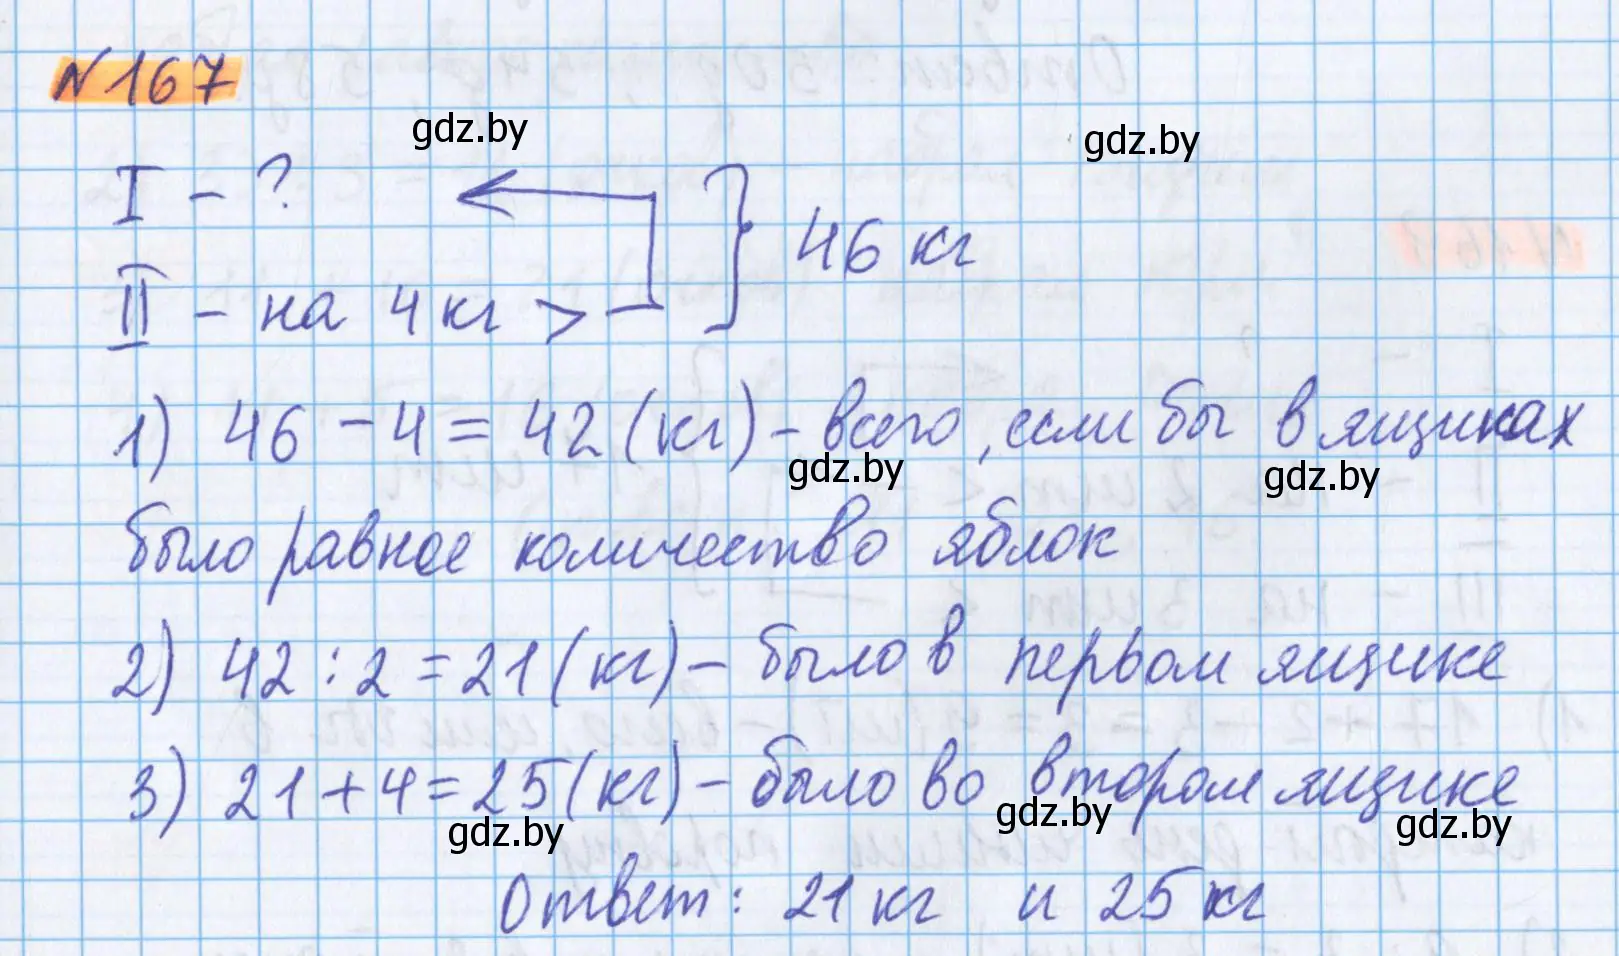 №167
gdz.by
gdz.by
I - ?
46 кг
II - на 4 кг >
1) 46 - 4 = 42 (кг) - всего, если бы в ящиках
gdz.by
gdz.by
было равное количество яблок
2) 42 : 2 = 21 (кг) - было в первом ящике
3) 21 + 4 = 25 (кг) - было во втором ящике
gdz.by
gdz.by
gdz.by
Ответ: 21 кг и 25 кг